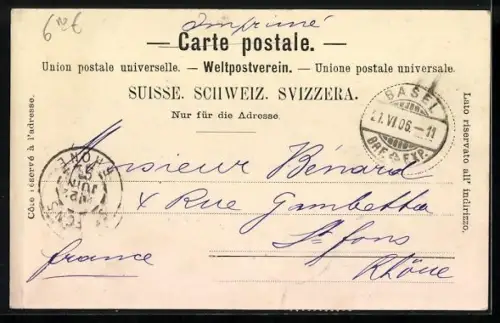 Imprimé
— Carte postale. —
Union postale universelle. — Weltpostverein. — Unione postale universale.
SUISSE. SCHWEIZ. SVIZZERA.
Nur für die Adresse.
Côté réservé à l'adresse.
Lato riservato all' indirizzo.
BASEL
21.VI.06.–11
BRF. EXP.
RHONE
JUIN
FONS
Monsieur Bénard
4 Rue Gambetta
St fons
Rhône
france